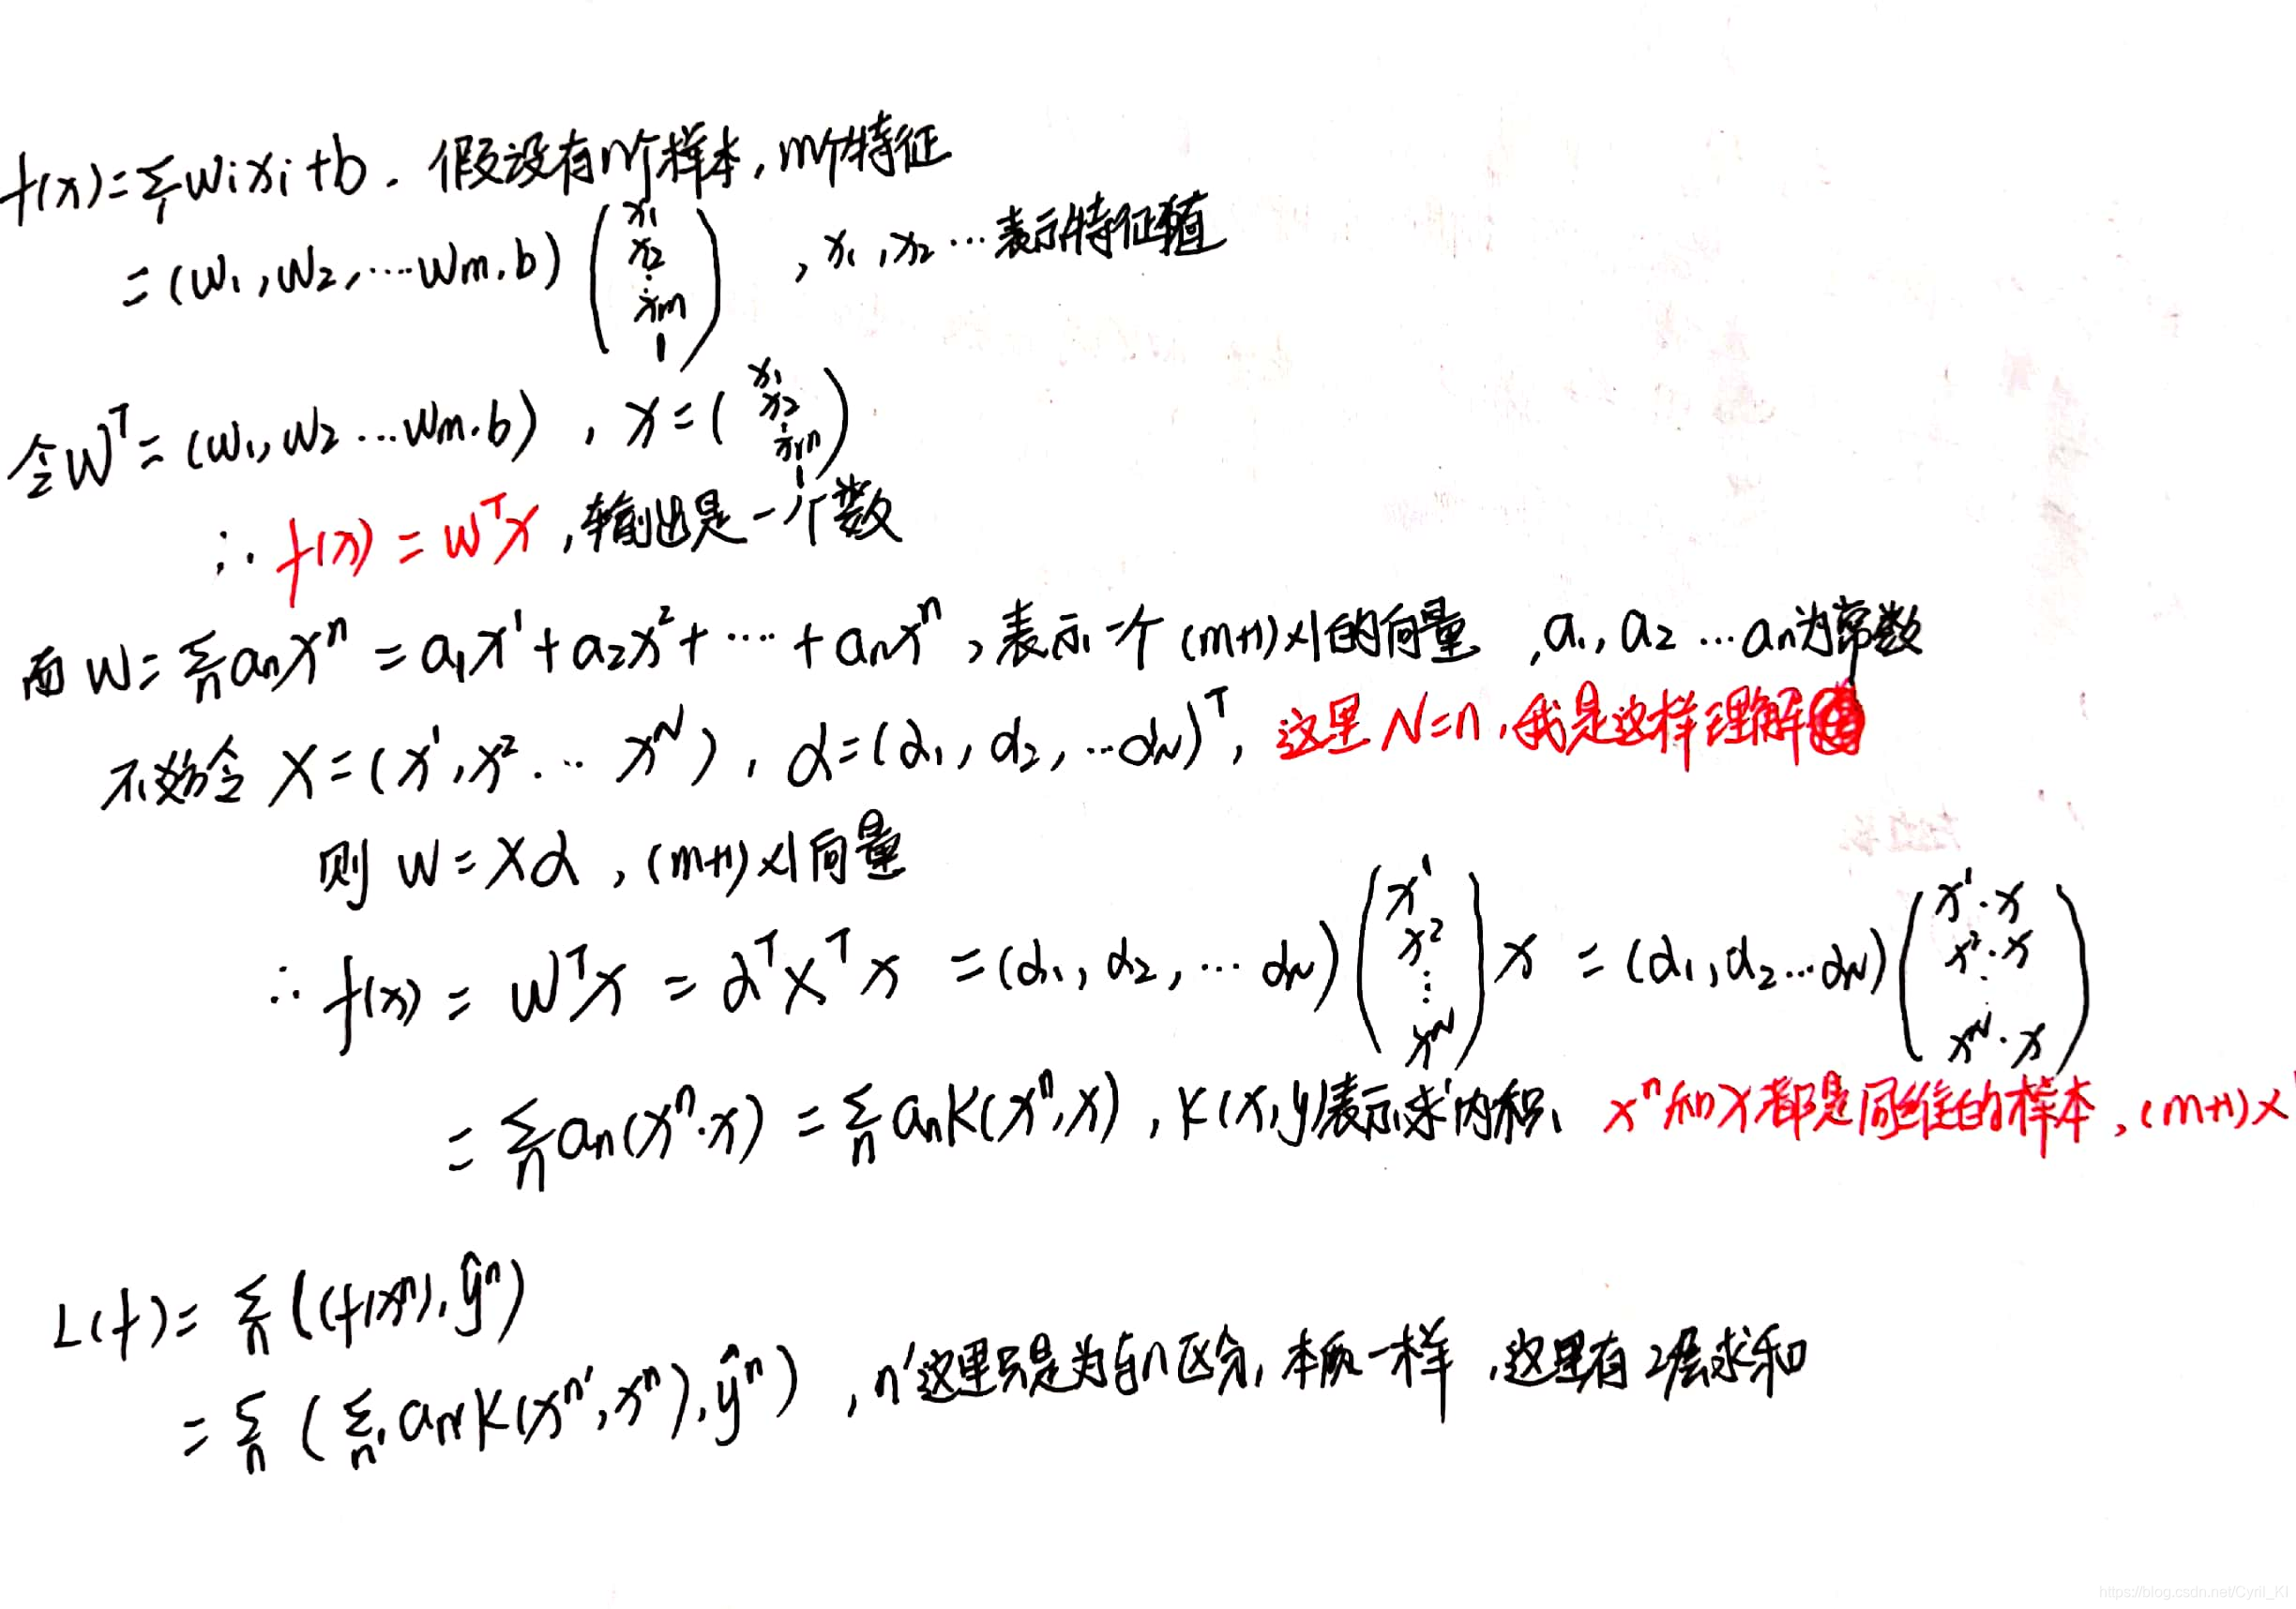 f(x)=∑ᵢwᵢxᵢ+b. 假设有n个样本,m个特征
=(w₁,w₂,⋯wm,b)(x₁ x₂ ⋮ xm 1) ,x₁,x₂⋯表示特征值
令wᵀ=(w₁,w₂⋯wm,b),x=(x₁ x₂ ⋮ xm 1)
∴f(x)=wᵀx,输出是一个数
而w=∑ₙaₙxⁿ=a₁x¹+a₂x²+⋯+aₙxⁿ,表示一个(m+1)×1的向量,a₁,a₂⋯aₙ为常数
不妨令X=(x¹,x²⋯xᴺ),α=(α₁,α₂,⋯αN)ᵀ,这里N=n,我是这样理解
则w=Xα,(m+1)×1向量
∴f(x)=wᵀx=αᵀXᵀx=(α₁,α₂,⋯αN)(x¹ x² ⋮ xᴺ)x=(α₁,α₂⋯αN)(x¹·x x²·x ⋮ xᴺ·x)
=∑ₙaₙ(xⁿ·x)=∑ₙaₙK(xⁿ,x),K(x,y)表示求内积、xⁿ和x都是同维的样本,(m+1)×1
L(f)=∑ₙl(f(xⁿ),ŷⁿ)
=∑ₙ(∑ₙ'aₙ'K(xⁿ',xⁿ),ŷⁿ),n'这里只是为与n区分,本质一样,这里有2层求和
https://blog.csdn.net/Cyril_KI